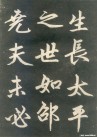 生長太平
之世如邵
堯夫未必